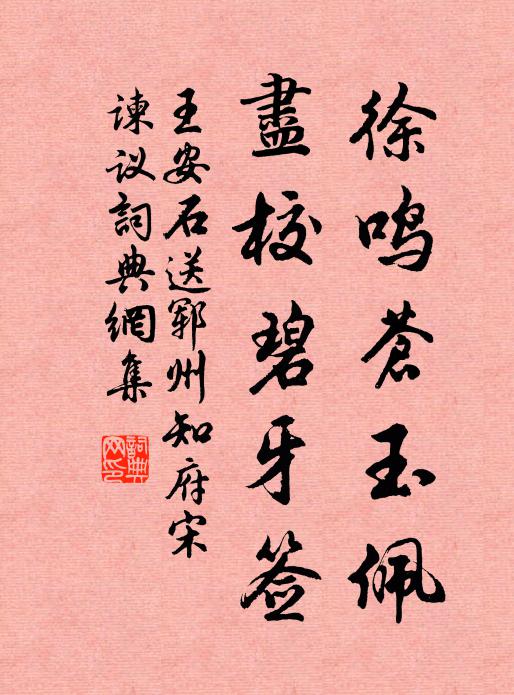 徐鸣苍玉佩
盡校碧牙签
王安石送郓州知府宋
谏议詞典網集
詞典
网印